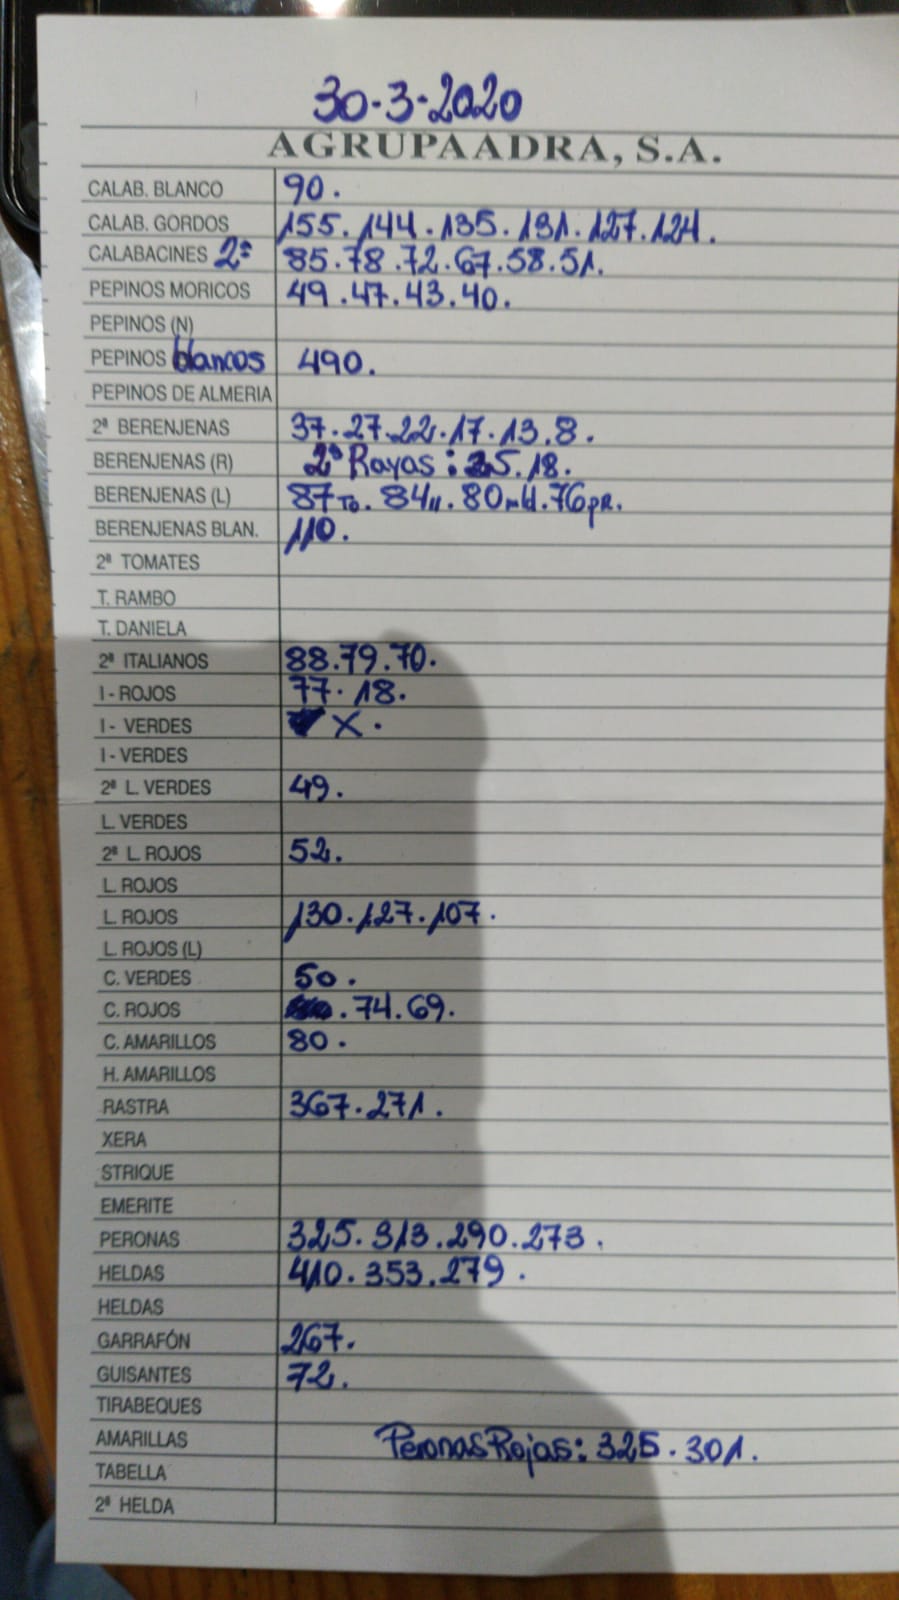 30-3-2020
AGRUPAADRA, S.A.
CALAB. BLANCO 90.
CALAB. GORDOS 155.144.135.131.127.124.
CALABACINES 2ª 85.78.72.67.58.51.
PEPINOS MORICOS 49.47.43.40.
PEPINOS (N)
PEPINOS blancos 490.
PEPINOS DE ALMERIA
2ª BERENJENAS 37.27.22.17.13.8.
BERENJENAS (R) 2ª Rayas: 25.18.
BERENJENAS (L) 87 To. 84 ,,. 80 md. 76 pr.
BERENJENAS BLAN. 110.
2ª TOMATES
T. RAMBO
T. DANIELA
2ª ITALIANOS 88.79.70.
I - ROJOS 77.18.
I - VERDES X.
I - VERDES
2ª L. VERDES 49.
L. VERDES
2ª L. ROJOS 52.
L. ROJOS
L. ROJOS 130.127.107.
L. ROJOS (L)
C. VERDES 50.
C. ROJOS .74.69.
C. AMARILLOS 80.
H. AMARILLOS
RASTRA 367.271.
XERA
STRIQUE
EMERITE
PERONAS 325.313.290.273.
HELDAS 410.353.279.
HELDAS
GARRAFÓN 267.
GUISANTES 72.
TIRABEQUES
AMARILLAS Peronas Rojas: 325.301.
TABELLA
2ª HELDA